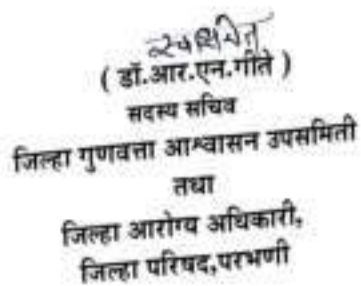 स्वाक्षरित
( डॉ.आर.एन.गीते )
सदस्य सचिव
जिल्हा गुणवत्ता आश्वासन उपसमिती
तथा
जिल्हा आरोग्य अधिकारी,
जिल्हा परिषद,परभणी